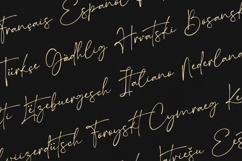 Français Español
Türkçe Gàdhlig Hrvatski Bosansk
ti Lëtzebuergesch Italiano Nederlan
wiizerdütsch Føroyskt Cymraeg K
viešu Ees